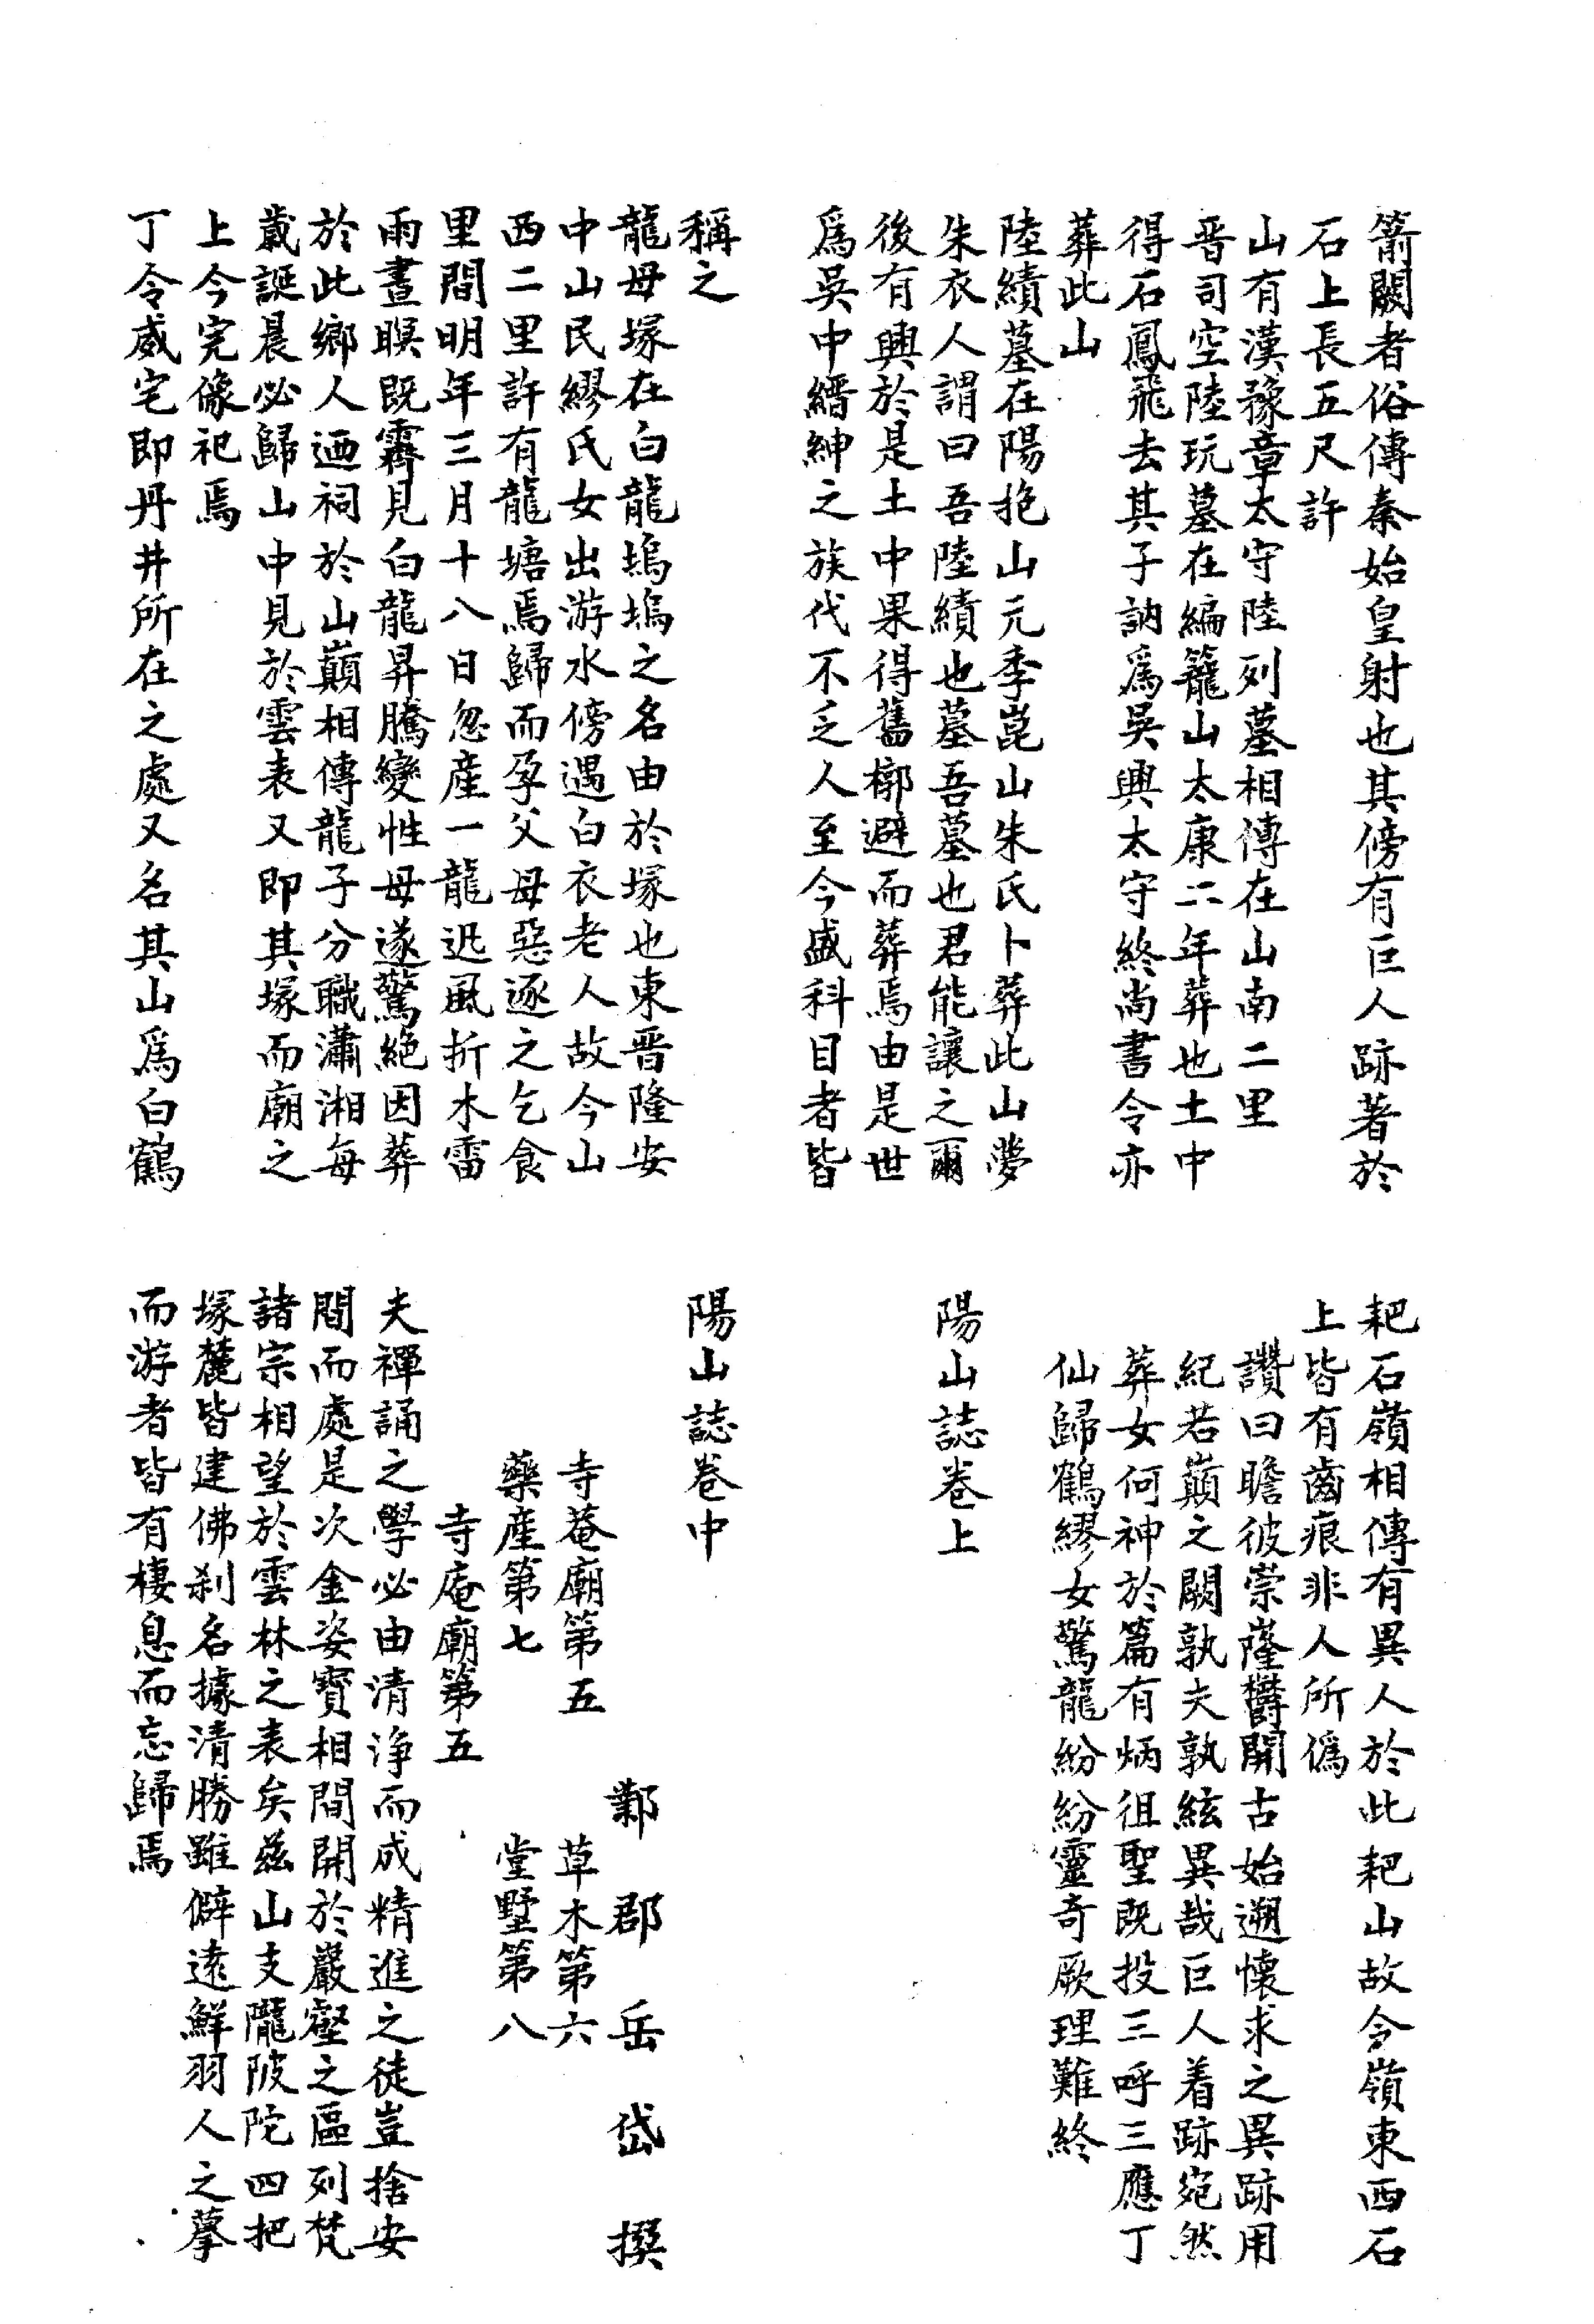 箭闕者俗傳秦始皇射也其傍有巨人跡著於
石上長五尺許
山有漢豫章太守陸列墓相傳在山南二里
晋司空陸玩墓在編籠山太康二年葬也土中
得石鳳飛去其子訥爲吳興太守終尚書令亦
葬此山
陸績墓在陽抱山元季崑山朱氏卜葬此山夢
朱衣人謂曰吾陸績也墓吾墓也君能讓之爾
後有興於是土中果得舊槨避而葬焉由是世
爲吳中縉紳之族代不乏人至今盛科目者皆
稱之
龍母塚在白龍塢塢之名由於塚也東晋隆安
中山民繆氏女出游水傍遇白衣老人故今山
西二里許有龍塘焉歸而孕父母惡逐之乞食
里間明年三月十八日忽産一龍迅風折木雷
雨晝瞑既霽見白龍昇騰變性母遂驚絶因葬
於此鄉人迺祠於山巔相傳龍子分職瀟湘每
歲誕晨必歸山中見於雲表又即其塚而廟之
上今完像祀焉
丁令威宅即丹井所在之處又名其山爲白鶴
耙石嶺相傳有異人於此耙山故今嶺東西石
上皆有齒痕非人所僞
讚曰瞻彼崇隆欝開古始遡懷求之異跡用
紀若巔之闕孰夫孰絃異哉巨人着跡宛然
葬女何神於篇有炳徂聖既投三呼三應丁
仙歸鶴繆女驚龍紛紛靈奇厥理難終
陽山誌卷上
陽山誌卷中
鄴郡岳岱撰
寺菴廟第五　草木第六
藥産第七　堂墅第八
寺庵廟第五
夫禪誦之學必由清淨而成精進之徒豈捨安
間而處是次金姿寶相間開於巖壑之區列梵
諸宗相望於雲林之表矣茲山支隴陂陀四把
塚麓皆建佛刹名據清勝雖僻遠鮮羽人之摹
而游者皆有棲息而忘歸焉